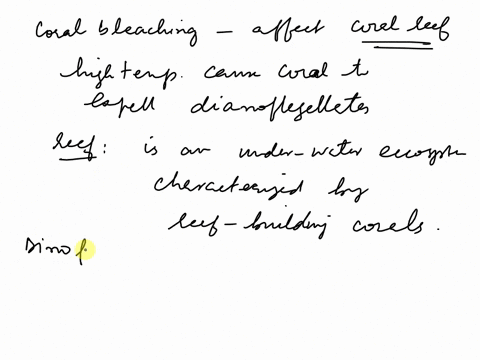 coral bleaching - affect coral reef
high temp. cause coral to
expell dianoflegelletes
reef: is an under-water ecosyste
characterized by
reef-building corals.
Dinof